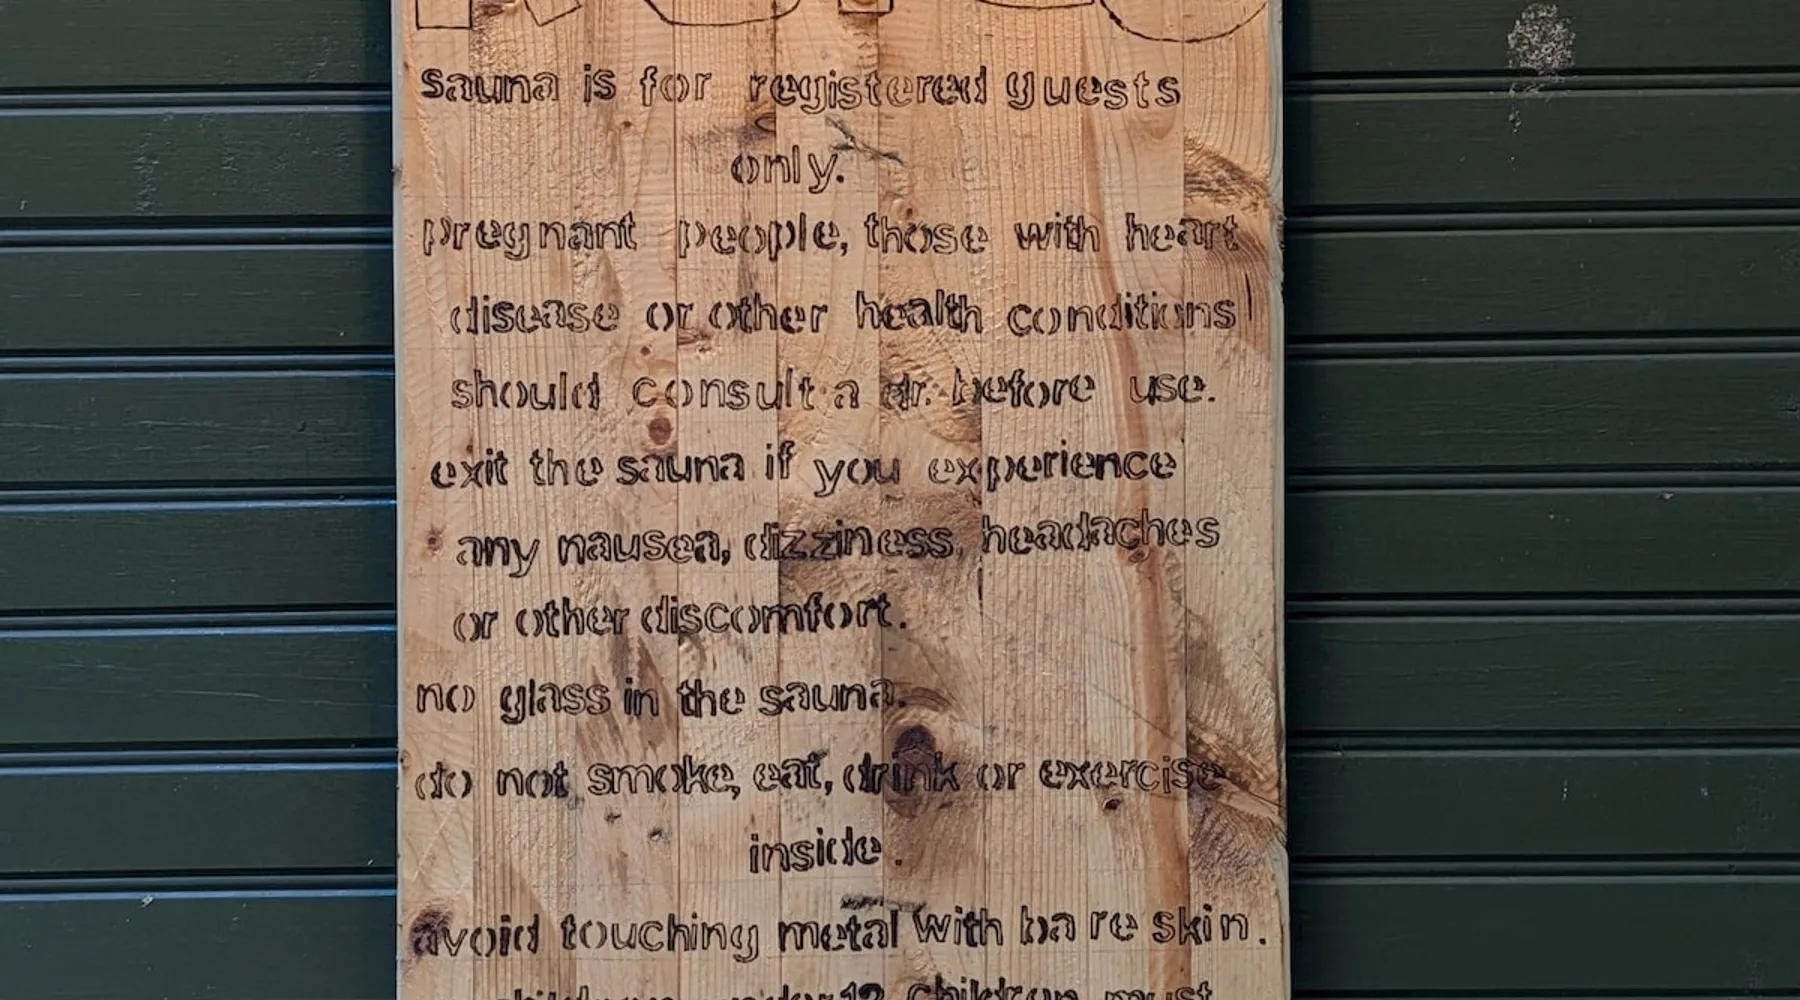 sauna is for registered guests
only.
pregnant people, those with heart
disease or other health conditions
should consult a dr. before use.
exit the sauna if you experience
any nausea, dizziness, headaches
or other discomfort.
no glass in the sauna.
do not smoke, eat, drink or exercise
inside.
avoid touching metal with bare skin.
under 12 children must